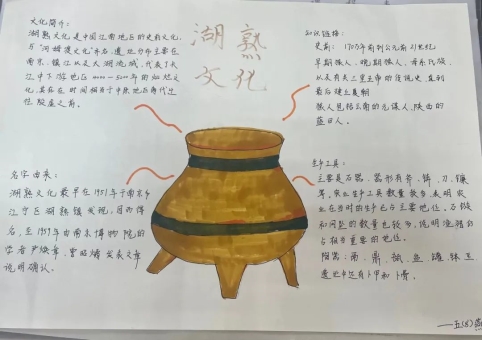 湖熟
文化
文化简介：
湖熟文化是中国江南地区的史前文化,
与"河姆渡文化"齐名,遗址分布主要在
南京、镇江以及太湖流域,代表了长
江中下游地区4000—5000年的灿烂文
化,其存在时间相当于中原地区商代过
之前。
知识链接：
史前：170万年前到公元前21世纪
早期猿人、晚期猿人、母系氏族、
以及有关三皇五帝的传说史,直到
最后建立夏朝
猿人包括云南的元谋人,陕西的
蓝田人。
名字由来：
湖熟文化最早在1951年于南京市
江宁区湖熟镇发现,因而得
名,在1959年由南京博物院的
学者尹焕章、曾昭燏发表文章
说明确认。
生产工具：
主要是石器、器形有斧、锛、刀、镰
等,农业生产工具数量较多,表明农
业在当时的生产已占主要地位。石镞
和网坠的数量也较多,说明渔猎仍
占相当重要的地位。
陶器：鬲、鼎、甗、盆、罐、钵豆
遗址中还有卜甲和卜骨。
——五(8)